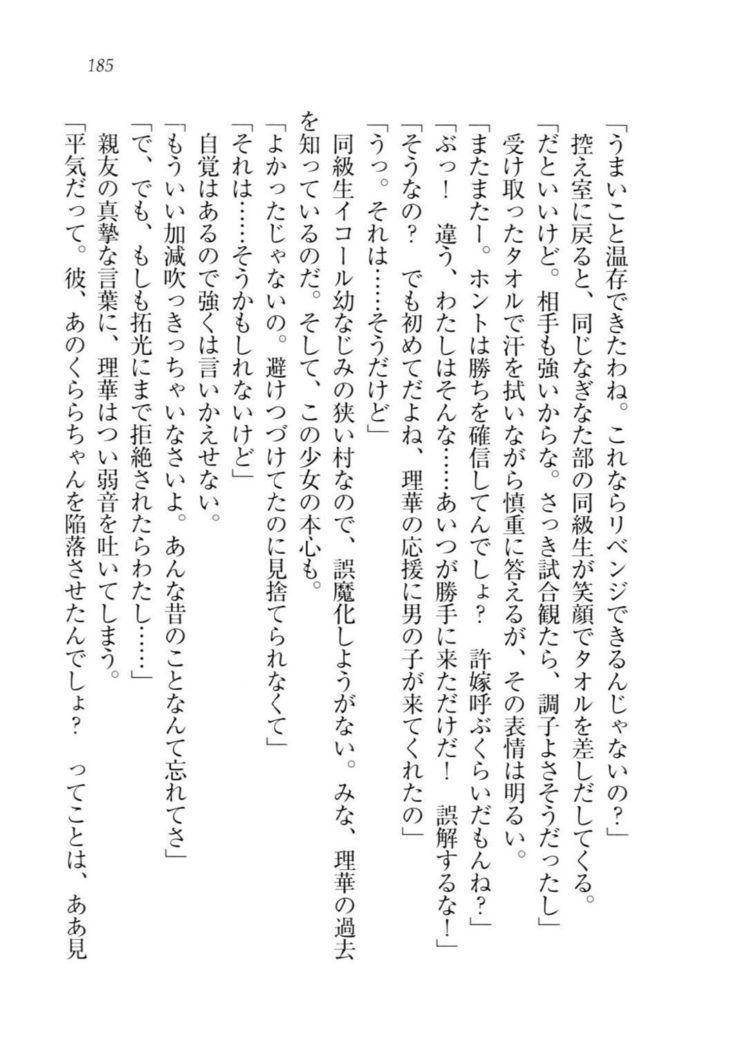 185
「うまいこと温存できたわね。これならリベンジできるんじゃないの？」
控え室に戻ると、同じなぎなた部の同級生が笑顔でタオルを差しだしてくる。
「だといいけど。相手も強いからな。さっき試合観たら、調子よさそうだったし」
受け取ったタオルで汗を拭いながら慎重に答えるが、その表情は明るい。
「またまたー。ホントは勝ちを確信してんでしょ？　許嫁呼ぶくらいだもんね？」
「ぶっ！　違う、わたしはそんな……あいつが勝手に来ただけだ！　誤解するな！」
「そうなの？　でも初めてだよね、理華の応援に男の子が来てくれたの」
「うっ。それは……そうだけど」
同級生イコール幼なじみの狭い村なので、誤魔化しようがない。みな、理華の過去
を知っているのだ。そして、この少女の本心も。
「よかったじゃないの。避けつづけてたのに見捨てられなくて」
「それは……そうかもしれないけど」
自覚はあるので強くは言いかえせない。
「もういい加減吹っきっちゃいなさいよ。あんな昔のことなんて忘れてさ」
「で、でも、もしも拓光にまで拒絶されたらわたし……」
親友の真摯な言葉に、理華はつい弱音を吐いてしまう。
「平気だって。彼、あのくららちゃんを陥落させたんでしょ？　ってことは、ああ見